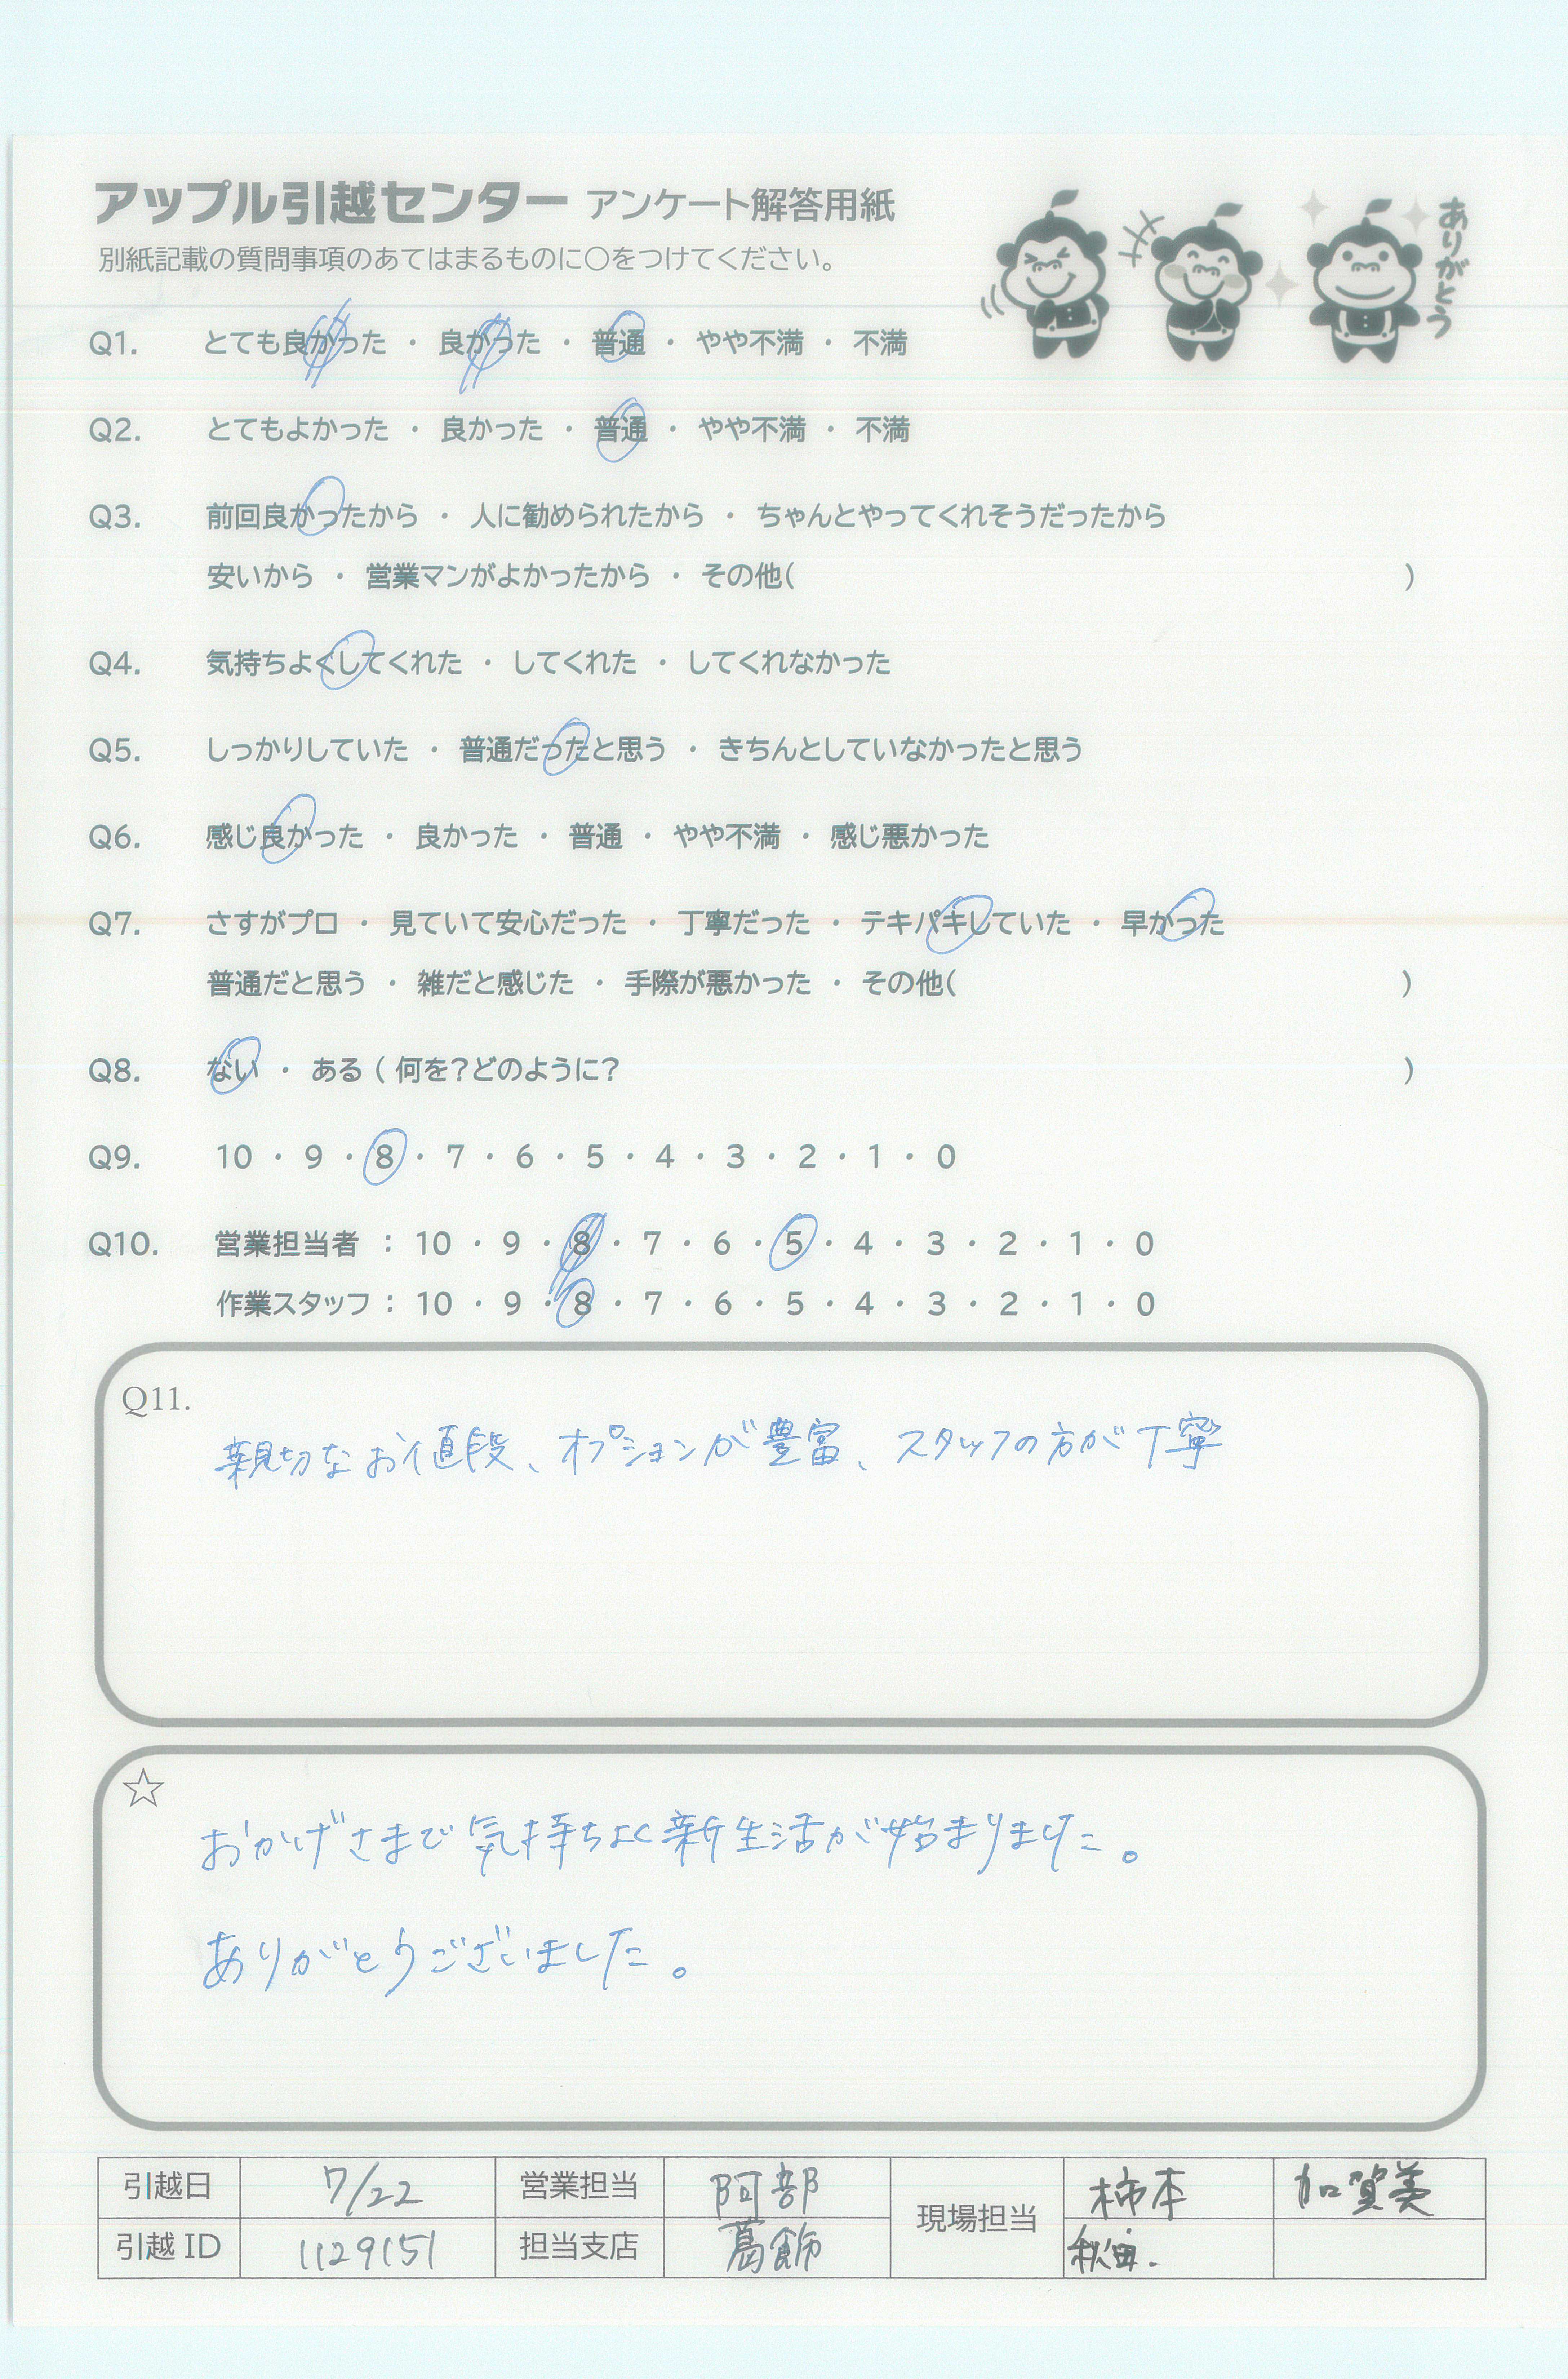 アップル引越センター アンケート解答用紙
別紙記載の質問事項のあてはまるものに○をつけてください。
ありがとう
Q1. とても良かった ・ 良かった ・ 普通 ・ やや不満 ・ 不満
Q2. とてもよかった ・ 良かった ・ 普通 ・ やや不満 ・ 不満
Q3. 前回良かったから ・ 人に勧められたから ・ ちゃんとやってくれそうだったから
安いから ・ 営業マンがよかったから ・ その他( )
Q4. 気持ちよくしてくれた ・ してくれた ・ してくれなかった
Q5. しっかりしていた ・ 普通だったと思う ・ きちんとしていなかったと思う
Q6. 感じ良かった ・ 良かった ・ 普通 ・ やや不満 ・ 感じ悪かった
Q7. さすがプロ ・ 見ていて安心だった ・ 丁寧だった ・ テキパキしていた ・ 早かった
普通だと思う ・ 雑だと感じた ・ 手際が悪かった ・ その他( )
Q8. ない ・ ある ( 何を?どのように? )
Q9. 10 ・ 9 ・ 8 ・ 7 ・ 6 ・ 5 ・ 4 ・ 3 ・ 2 ・ 1 ・ 0
Q10. 営業担当者 : 10 ・ 9 ・ 8 ・ 7 ・ 6 ・ 5 ・ 4 ・ 3 ・ 2 ・ 1 ・ 0
作業スタッフ : 10 ・ 9 ・ 8 ・ 7 ・ 6 ・ 5 ・ 4 ・ 3 ・ 2 ・ 1 ・ 0
Q11.
親切なお値段、オプションが豊富、スタッフの方が丁寧
☆
おかげさまで気持ちよく新生活が始まりました。
ありがとうございました。
引越日 7/22 営業担当 阿部 現場担当 柿本 加賀美
引越 ID 1129151 担当支店 葛飾 秋田.